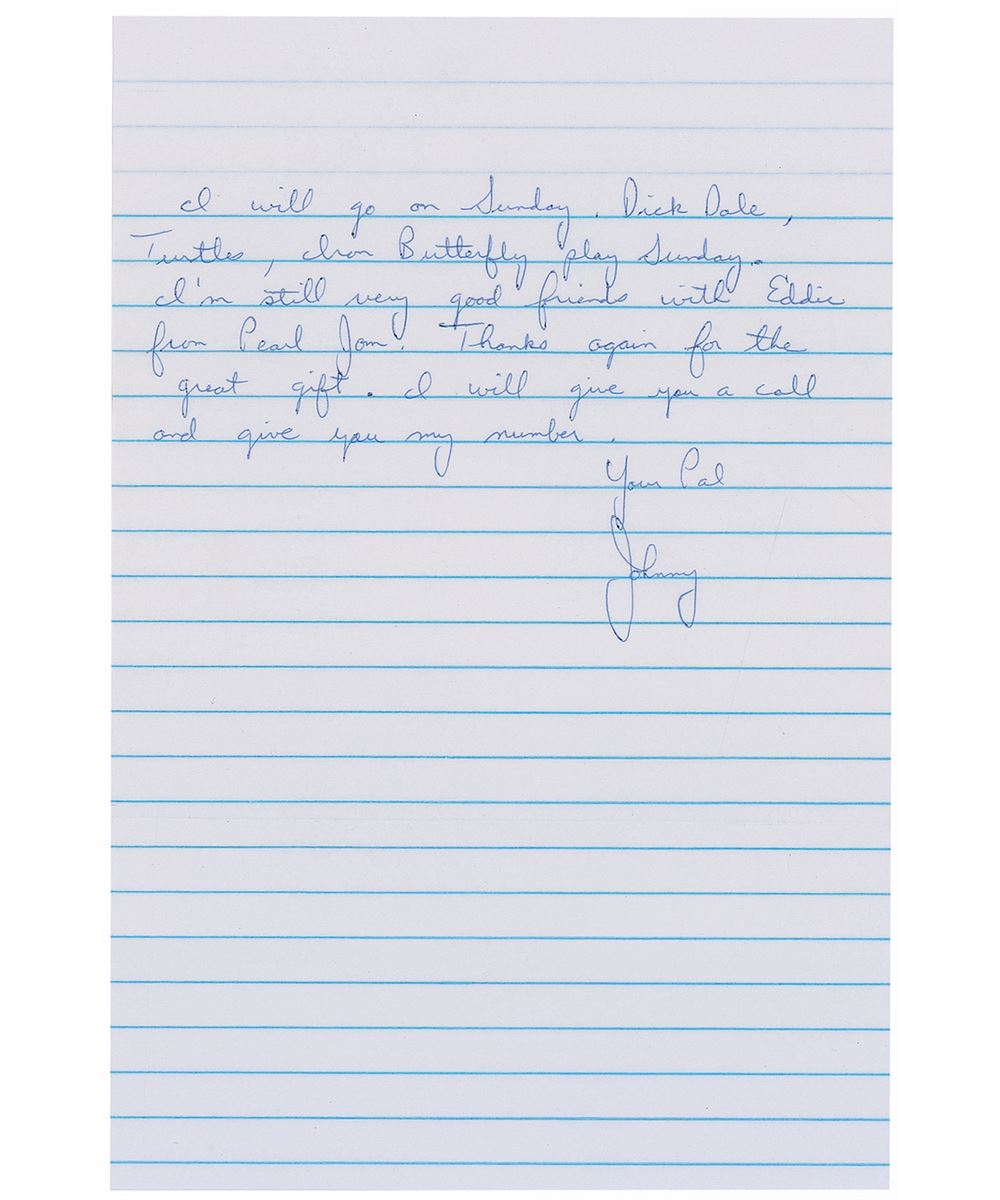 I will go on Sunday. Dick Dale,
Turtles, Iron Butterfly play Sunday.
I'm still very good friends with Eddie
from Pearl Jam. Thanks again for the
great gift. I will give you a call
and give you my number.
Your Pal
Johnny